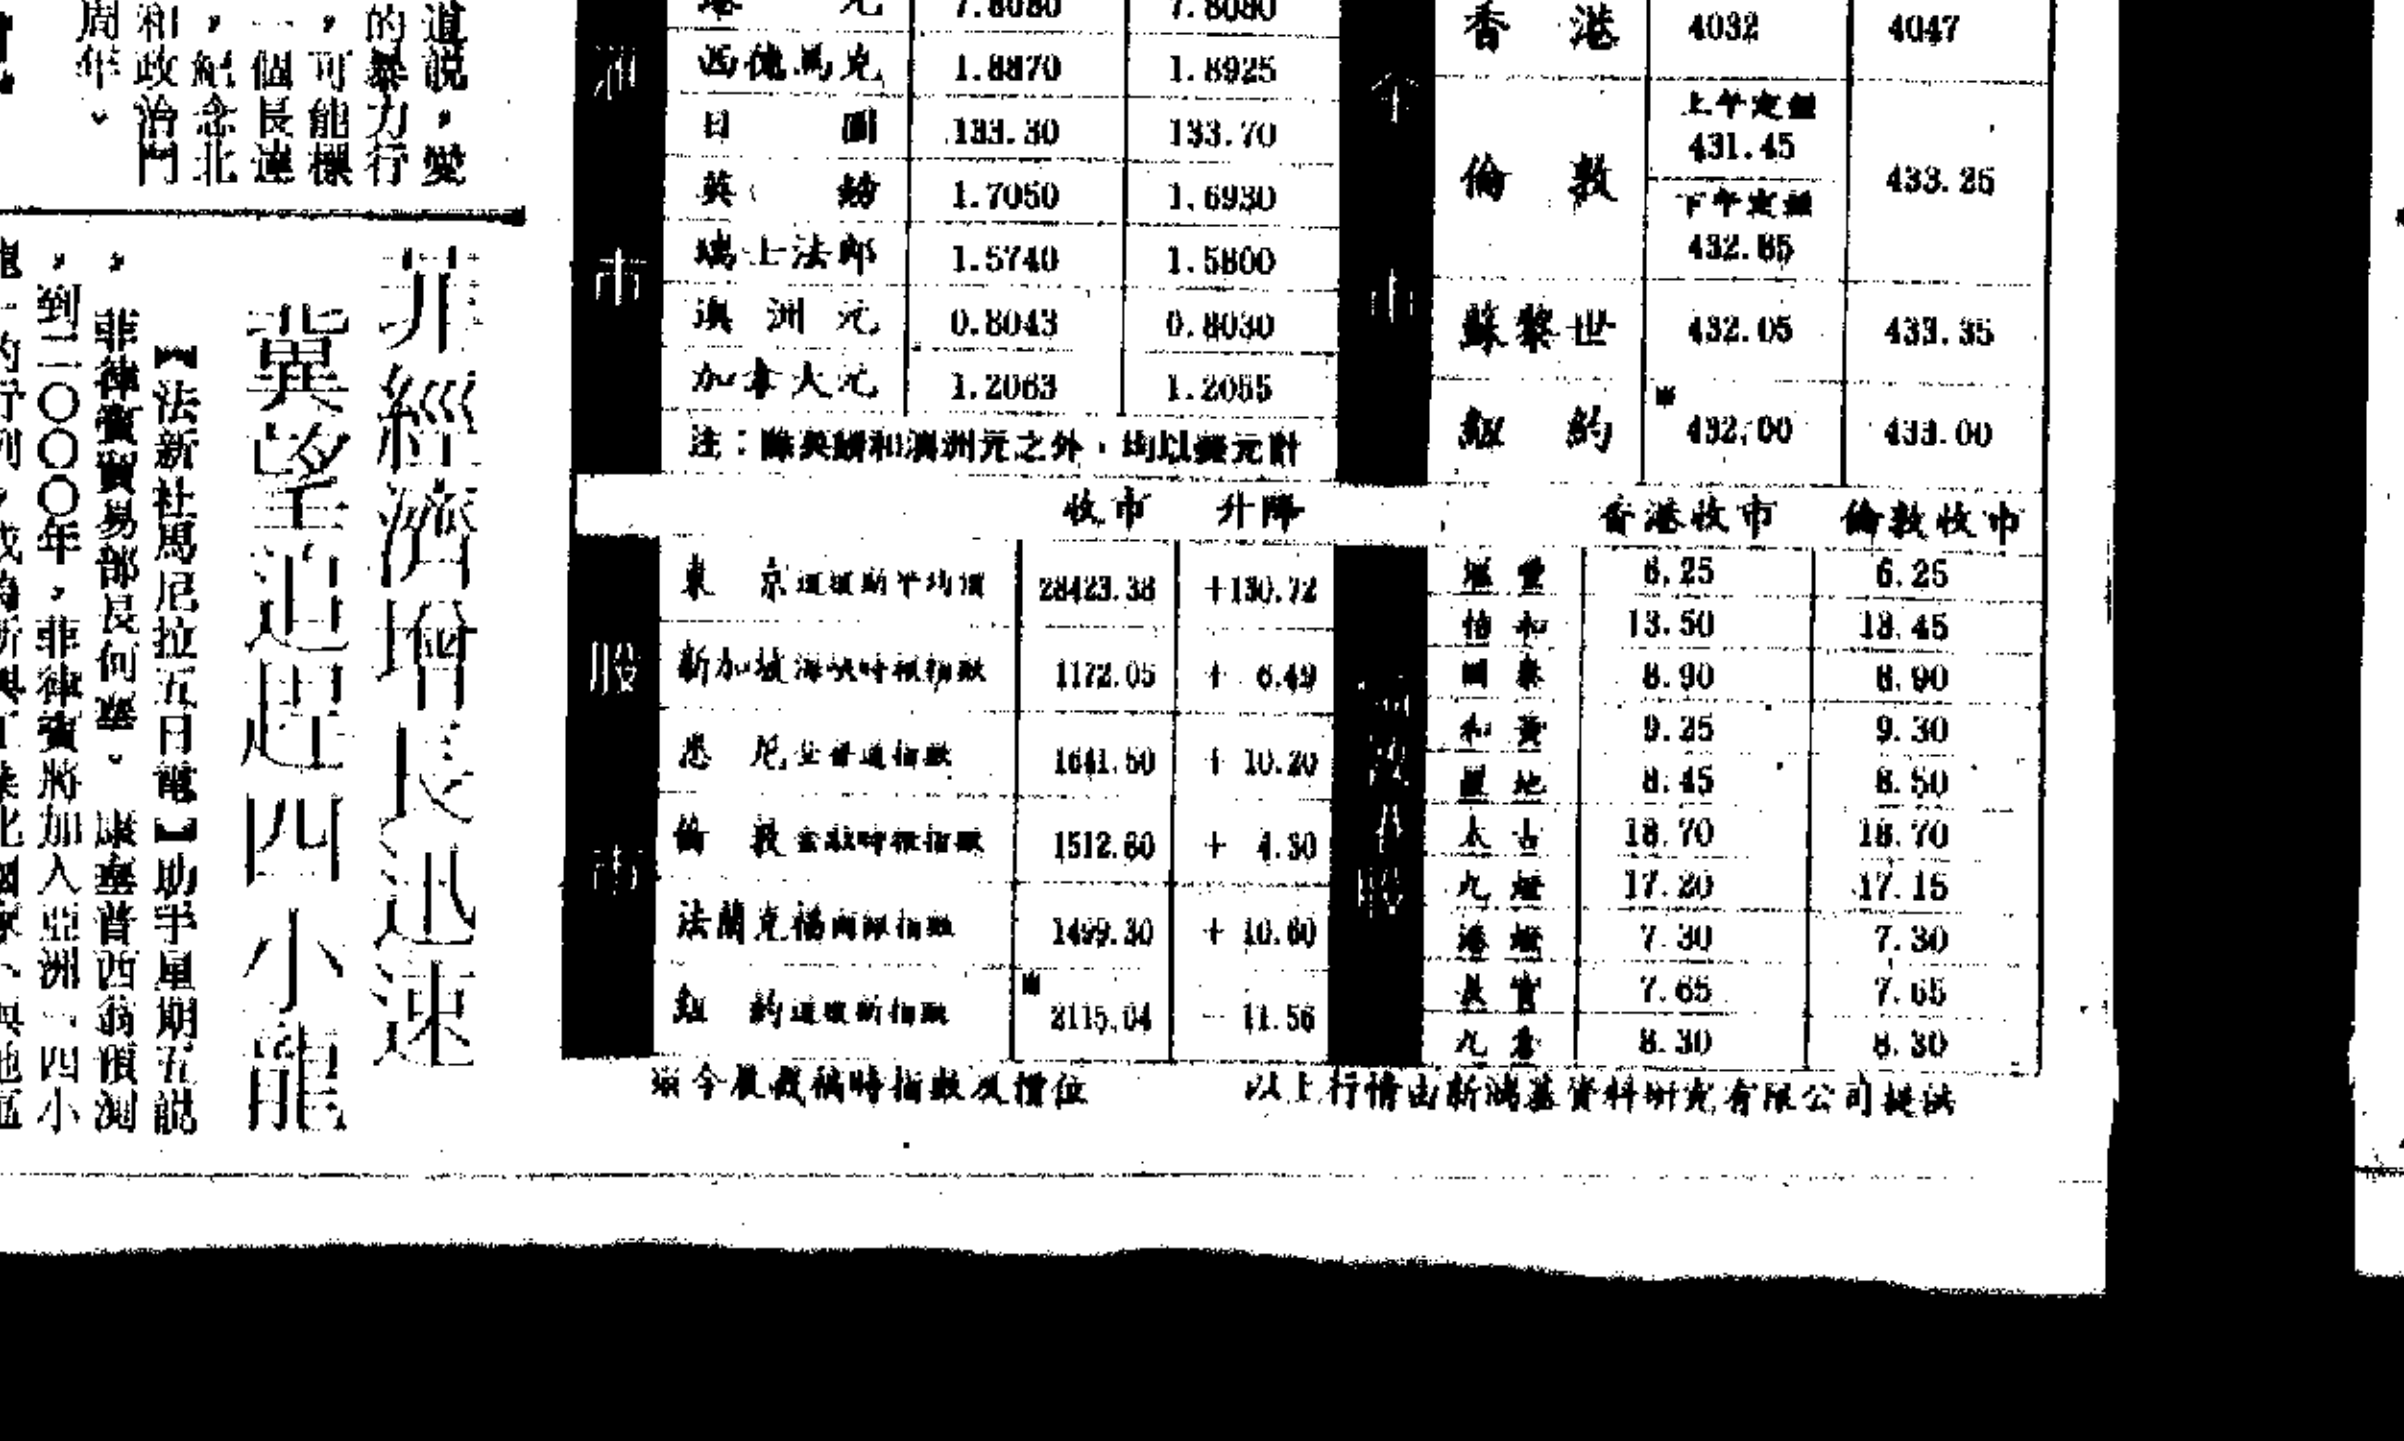 道説，愛
的暴力行
，可能標
一個長達
，紀念北
和政治鬥
周年。
菲經濟增長迅速
冀望追趕四小龍
【法新社馬尼拉五日電】助手星期五説
，菲律賓貿易部長何塞。康塞普西翁預測
，到二〇〇〇年，菲律賓將加入亞洲「四小
港 元 7.8080 7.8080
西德馬克 1.8870 1.8925
日 圓 133.30 133.70
英 鎊 1.7050 1.6930
瑞士法郎 1.5740 1.5800
澳洲元 0.8043 0.8030
加拿大元 1.2063 1.2055
注：除英鎊和澳洲元之外，均以美元計
金市
香 港 4032 4047
倫 敦 上午定價 431.45 433.25
下午定價 432.85
蘇黎世 432.05 433.35
紐 約 ※432.00 433.00
股市
收市 升降
東 京 道瓊斯平均價 28423.38 +130.72
新加坡 海峽時報指數 1172.05 + 6.49
悉 尼 全普通指數 1641.50 + 10.20
倫 敦 金融時報指數 1512.80 + 4.30
法蘭克福 商銀指數 1499.30 + 10.60
紐 約 道瓊斯指數 ※2115.04 - 11.56
香港收市 倫敦收市
滙豐 6.25 6.25
怡和 13.50 13.45
8.90 8.90
和黃 9.25 9.30
置地 8.45 8.50
太古 18.70 18.70
九燈 17.20 17.15
港燈 7.30 7.30
長實 7.65 7.65
九倉 8.30 8.30
※今晨截稿時指數及價位
以上行情由新鴻基資料研究有限公司提供